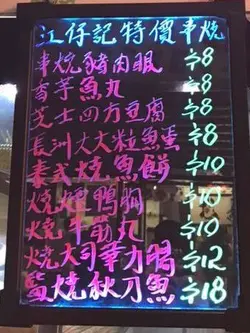 江仔記特價串燒
串燒豬肉眼 $8
香芋魚丸 $8
芝士四方豆腐 $8
長洲大大粒魚蛋 $8
泰式燒魚餅 $10
燒煙鴨胸 $10
燒牛筋丸 $10
燒大司華力腸 $12
鹽燒秋刀魚 $18